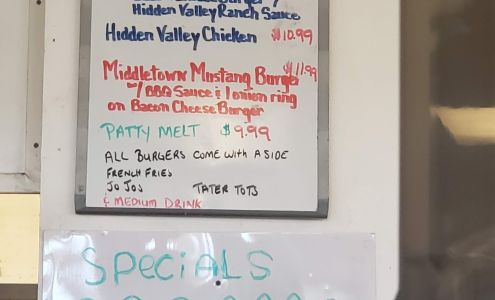 Hidden Valley Ranch Sauce
Hidden Valley Chicken $10.99
Middletown Mustang Burger $11.99
w/ BBQ Sauce & 1 onion ring
on Bacon Cheese Burger
PATTY MELT $9.99
ALL BURGERS COME WITH A SIDE
FRENCH FRIES
JO JOS TATER TOTS
& MEDIUM DRINK
SPECIALS